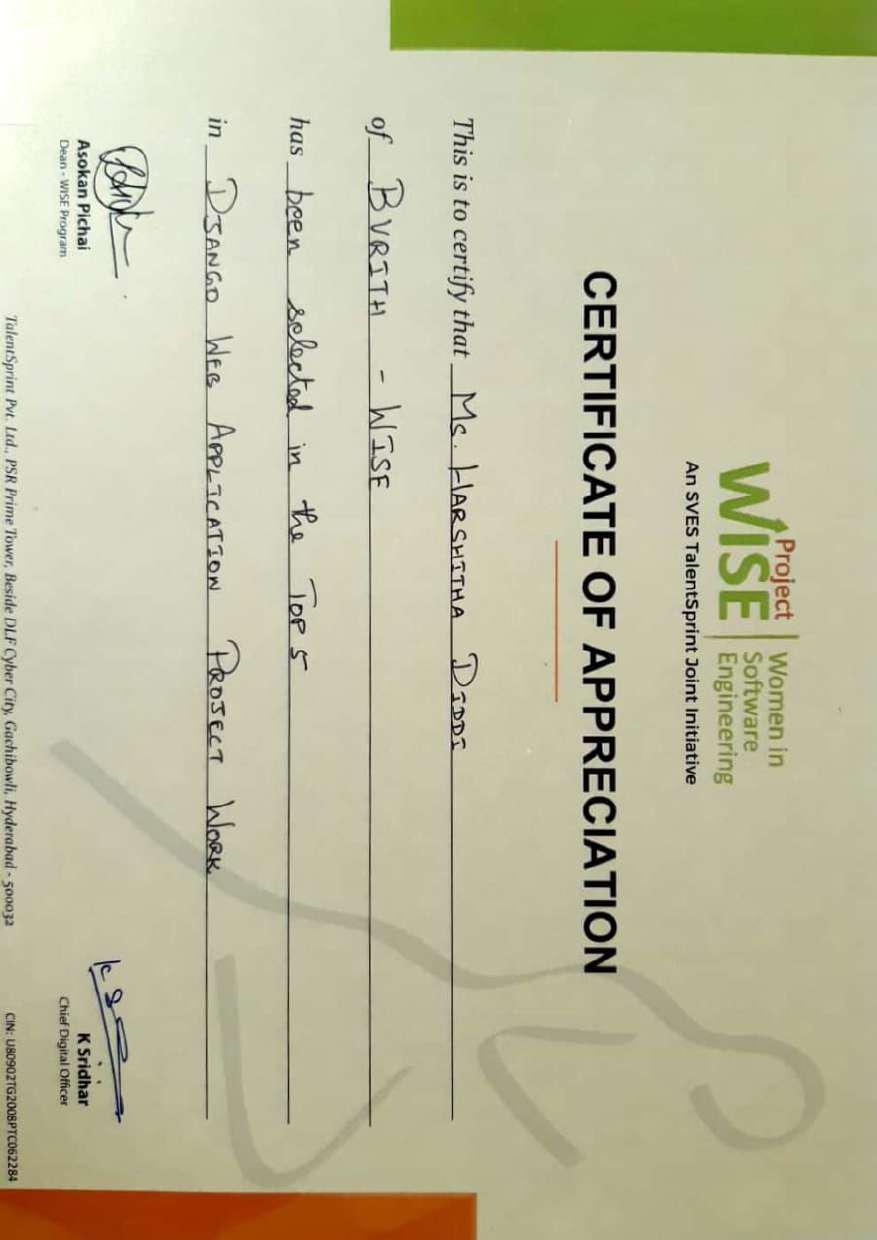 Project
WISE
Women in
Software
Engineering
An SVES TalentSprint Joint Initiative
CERTIFICATE OF APPRECIATION
This is to certify that Ms. HARSHITHA DIDDI
of BVRITH - WISE
has been selected in the TOP 5
in DJANGO WEB APPLICATION PROJECT WORK
Asokan Pichai
Dean - WISE Program
K S
K Sridhar
Chief Digital Officer
TalentSprint Pvt. Ltd., PSR Prime Tower, Beside DLF Cyber City, Gachibowli, Hyderabad - 500032
CIN: U80902TG2008PTC062284